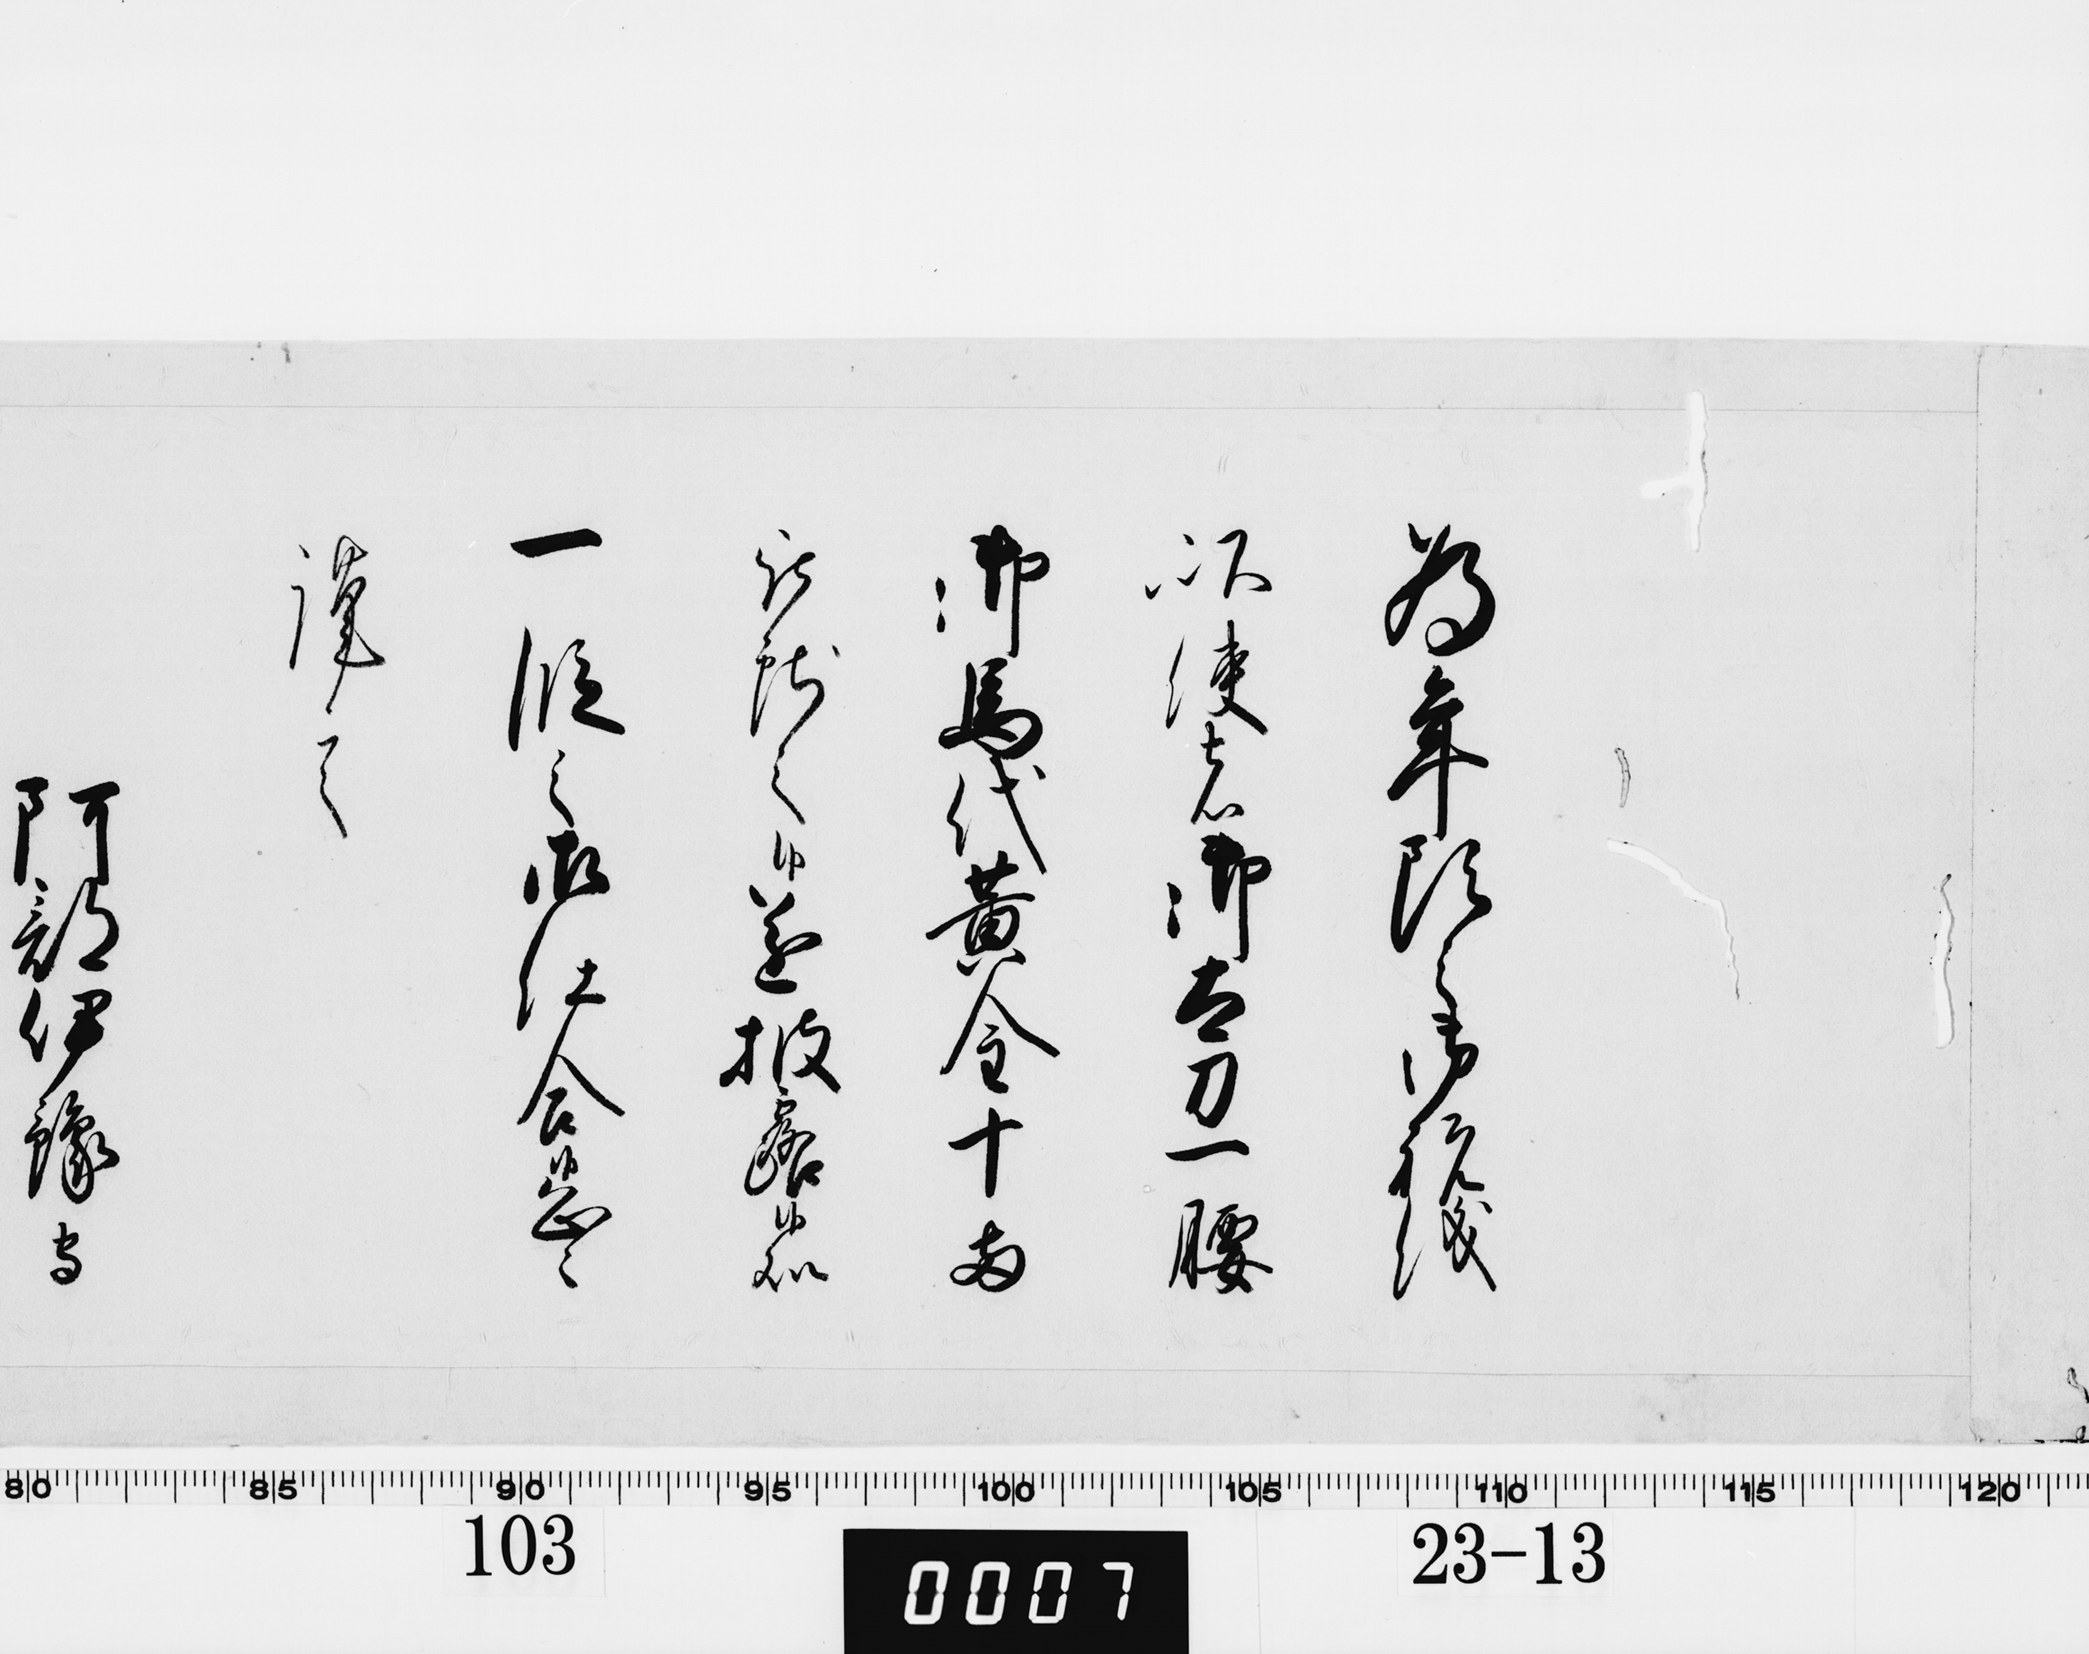 為年頭之御祝儀
以使者御太刀一腰
御馬代黄金十両
被献之候遂披露候処
一段之御仕合候恐々
謹言
阿部伊豫守
80 85 90 95 100 105 110 115 120
103
0007
23-13